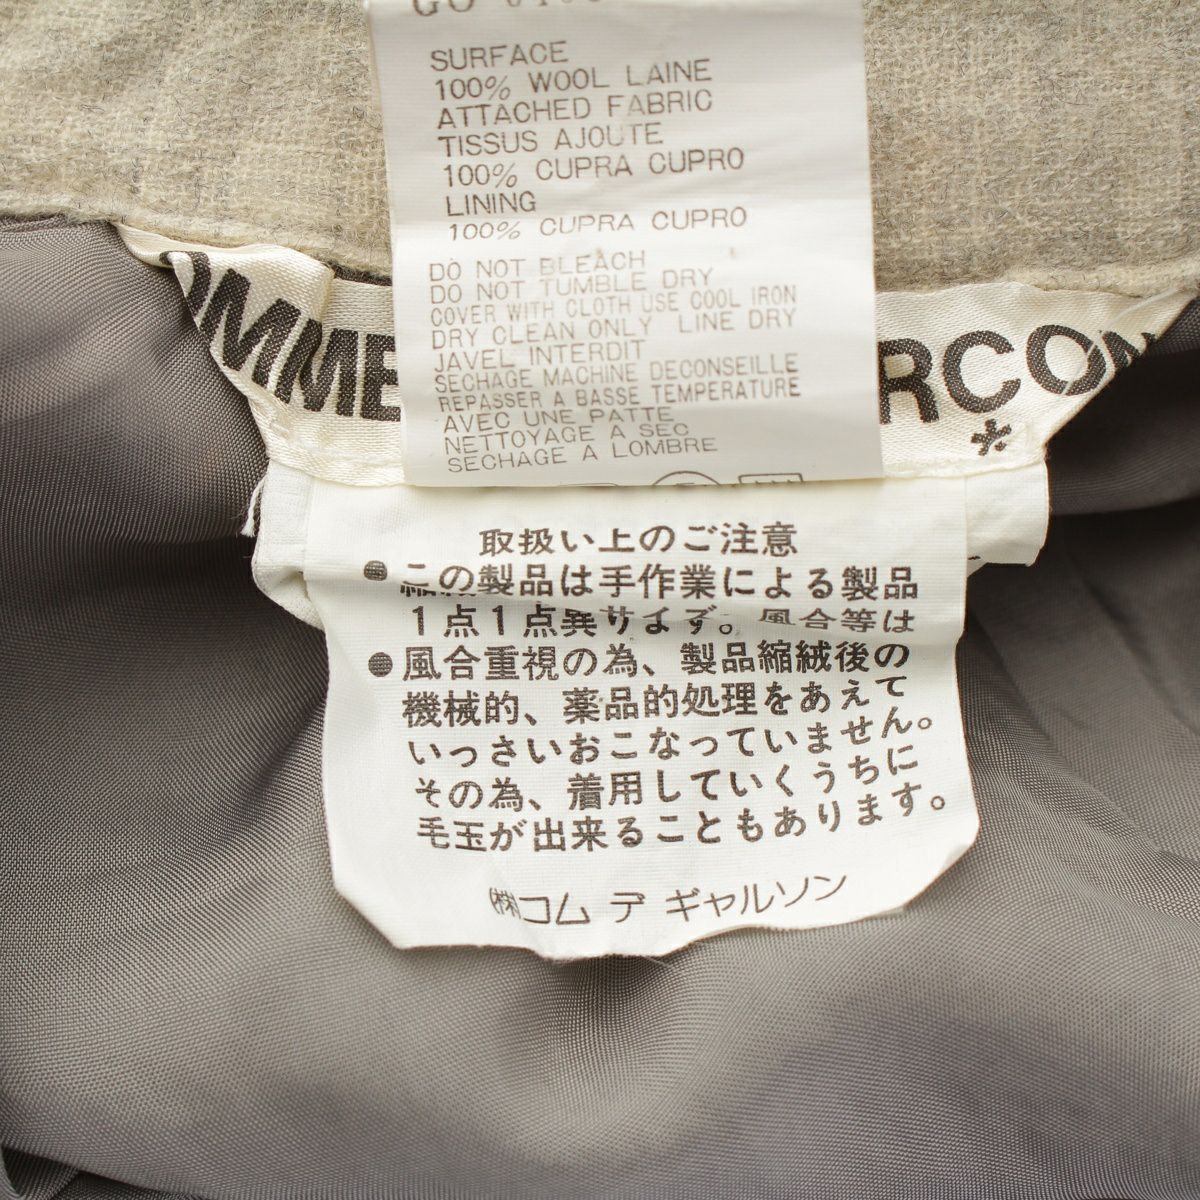 SURFACE
100% WOOL LAINE
ATTACHED FABRIC
TISSUS AJOUTE
100% CUPRA CUPRO
LINING
100% CUPRA CUPRO
DO NOT BLEACH
DO NOT TUMBLE DRY
COVER WITH CLOTH USE COOL IRON
DRY CLEAN ONLY LINE DRY
JAVEL INTERDIT
SECHAGE MACHINE DECONSEILLE
REPASSER A BASSE TEMPERATURE
AVEC UNE PATTE
NETTOYAGE A SEC
SECHAGE A LOMBRE
OMME RCON
取扱い上のご注意
●この製品は手作業による製品
1点1点異サイズ。風合等は
●風合重視の為、製品縮絨後の
機械的、薬品的処理をあえて
いっさいおこなっていません。
その為、着用していくうちに
毛玉が出来ることもあります。
㈱コム デ ギャルソン